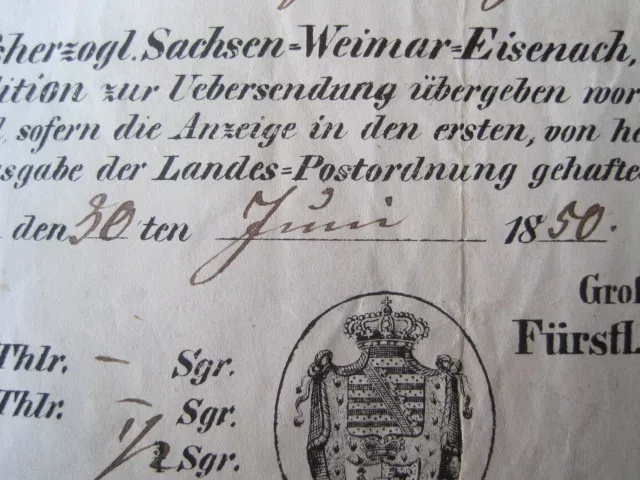 sherzogl. Sachsen=Weimar=Eisenach,
ition zur Uebersendung übergeben wor
sofern die Anzeige in den ersten, von he
sgabe der Landes=Postordnung gehafte
den 30 ten Juni 1850.
Gro
Fürstl.
Thlr. — Sgr.
Thlr. — Sgr.
1/2 Sgr.